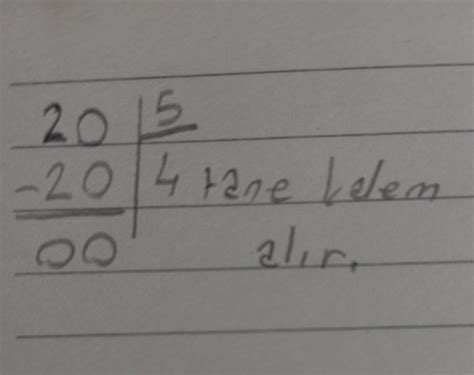 20 | 5
-20 | 4 tane kalem
00 alır.